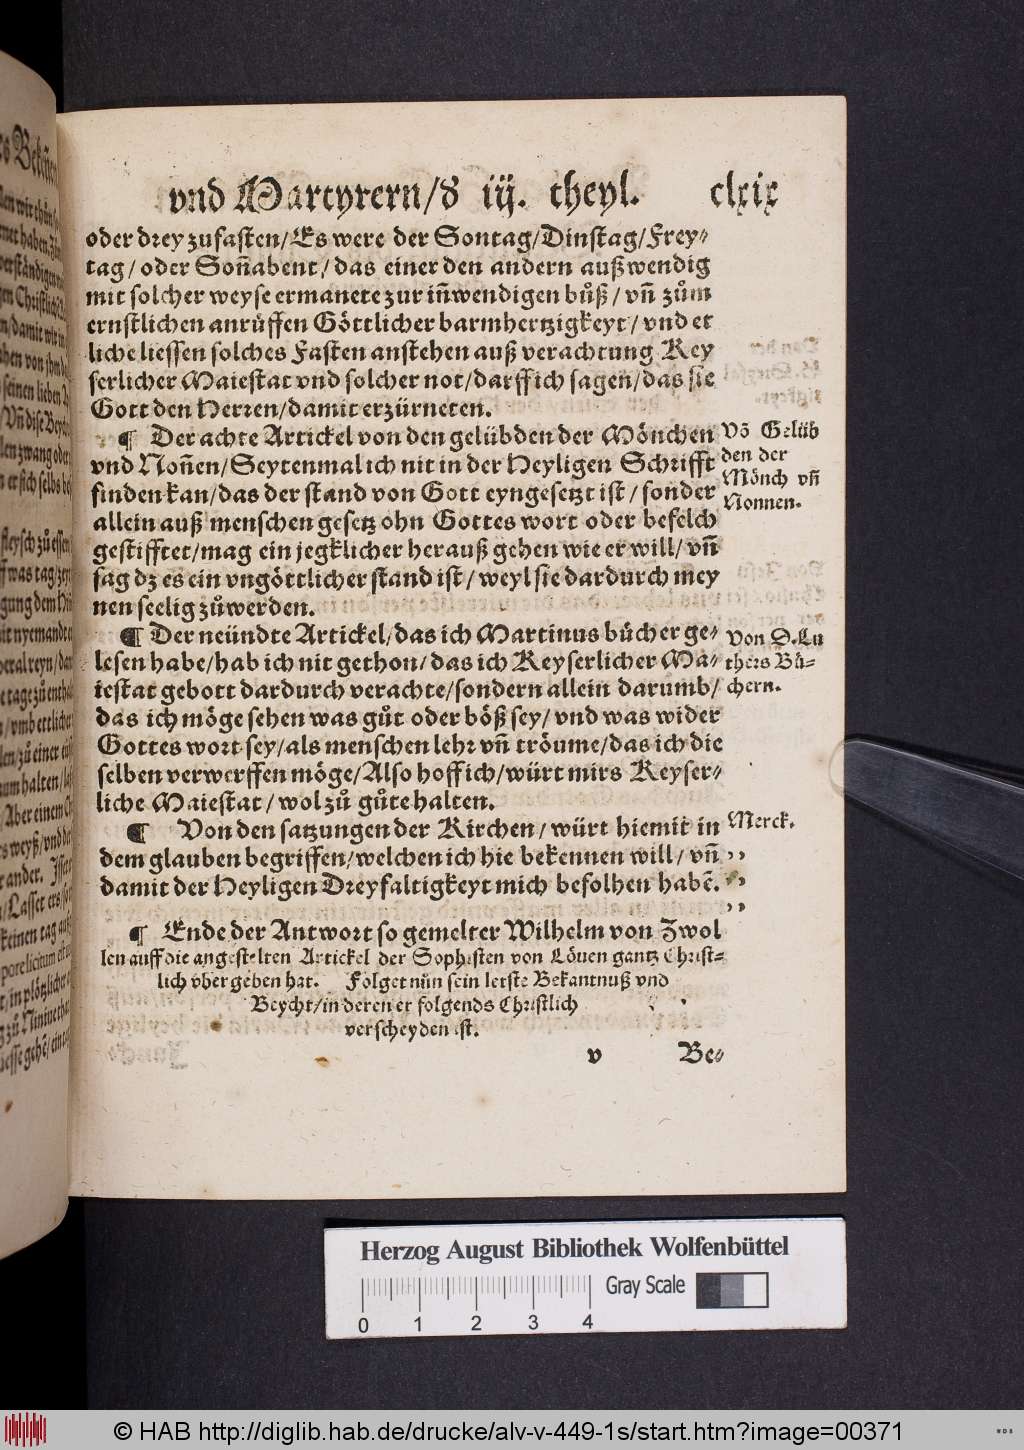 vnd Martyrern/8 iij. theyl. clxix
oder drey zufasten/Es were der Sontag/Dinstag/Frey-
tag/oder Soñabent/das einer den andern außwendig
mit solcher weyse ermanete zur iñwendigen bůß/vñ zům
ernstlichen anrůffen Göttlicher barmhertzigkeyt/vnd et
liche liessen solches Fasten anstehen auß verachtung Key
serlicher Maiestat vnd solcher not/darff ich sagen/das sie
Gott den Herren/damit erzürneten.
¶ Der achte Artickel von den gelübden der Mönchen
vnd Noñen/Seytenmal ich nit in der Heyligen Schrifft
finden kan/das der stand von Gott eyngesetzt ist/sonder
allein auß menschen gesetz ohn Gottes wort oder befelch
gestifftet/mag ein jegklicher herauß gehen wie er will/vñ
sag dz es ein vngöttlicher stand ist/weyl sie dardurch mey
nen seelig zůwerden.
Võ Gelüb
den der
Mönch vñ
Nonnen.
¶ Der neündte Artickel/das ich Martinus bücher ge-
lesen habe/hab ich nit gethon/das ich Keyserlicher Ma-
iestat gebott dardurch verachte/sondern allein darumb/
das ich möge sehen was gůt oder böß sey/vnd was wider
Gottes wort sey/als menschen lehr vñ tröume/das ich die
selben verwerffen möge/Also hoff ich/würt mirs Keyser-
liche Maiestat/wol zů gůte halten.
Von D. Lu
thers Bü-
chern.
¶ Von den satzungen der Kirchen/würt hiemit in
dem glauben begriffen/welchen ich hie bekennen will/vñ
damit der Heyligen Dreyfaltigkeyt mich befolhen habẽ.
Merck.
,,
,,
,,
¶ Ende der Antwort so gemelter Wilhelm von Zwol
len auff die angestelten Artickel der Sophisten von Löuen gantz Christ-
lich vbergeben hat. Folget nůn sein letste Bekantnuß vnd
Beycht/in deren er folgends Christlich
verscheyden ist.
v Be-
Herzog August Bibliothek Wolfenbüttel
0 1 2 3 4
Gray Scale
© HAB http://diglib.hab.de/drucke/alv-v-449-1s/start.htm?image=00371